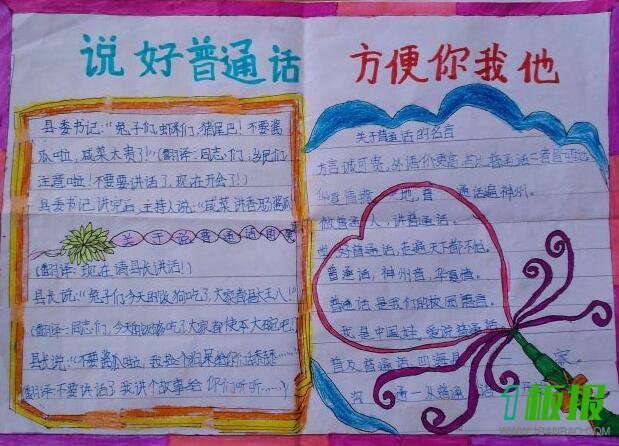 说好普通话 方便你我他
县委书记:"兔子们,虾米们,猪尾巴!不要酱
瓜啦,咸菜太贵了!"(翻译:同志们,乡民们
注意啦!不要讲话了,现在开会了!)
县委书记讲完后,主持人说:"咸菜请香肠酱瓜
关于说普通话的
(翻译:现在请县长讲话!)
县长说:"兔子们,今天的饭狗吃了,大家都是大王八!"
(翻译:同志们,今天的饭够吃了,大家都使大碗吧!
县长说:"不要酱瓜啦,我捡个狗屎给你们舔舔……
翻译:不要讲话了,我讲个故事给你们听听……)
关于普通话的名言
方言诚可贵,外语价更高,若比普通话
地,普通话遍神州。
做普通人,讲普通话。
好普通话,走遍天下都不怕。
普通话,神州音,华夏情。
普通话是我们的校园语言。
我是中国娃,爱说普通话
普及普通话,四海是一家。
通——从普通话开
1板报
WWW.1BANBAO.COM